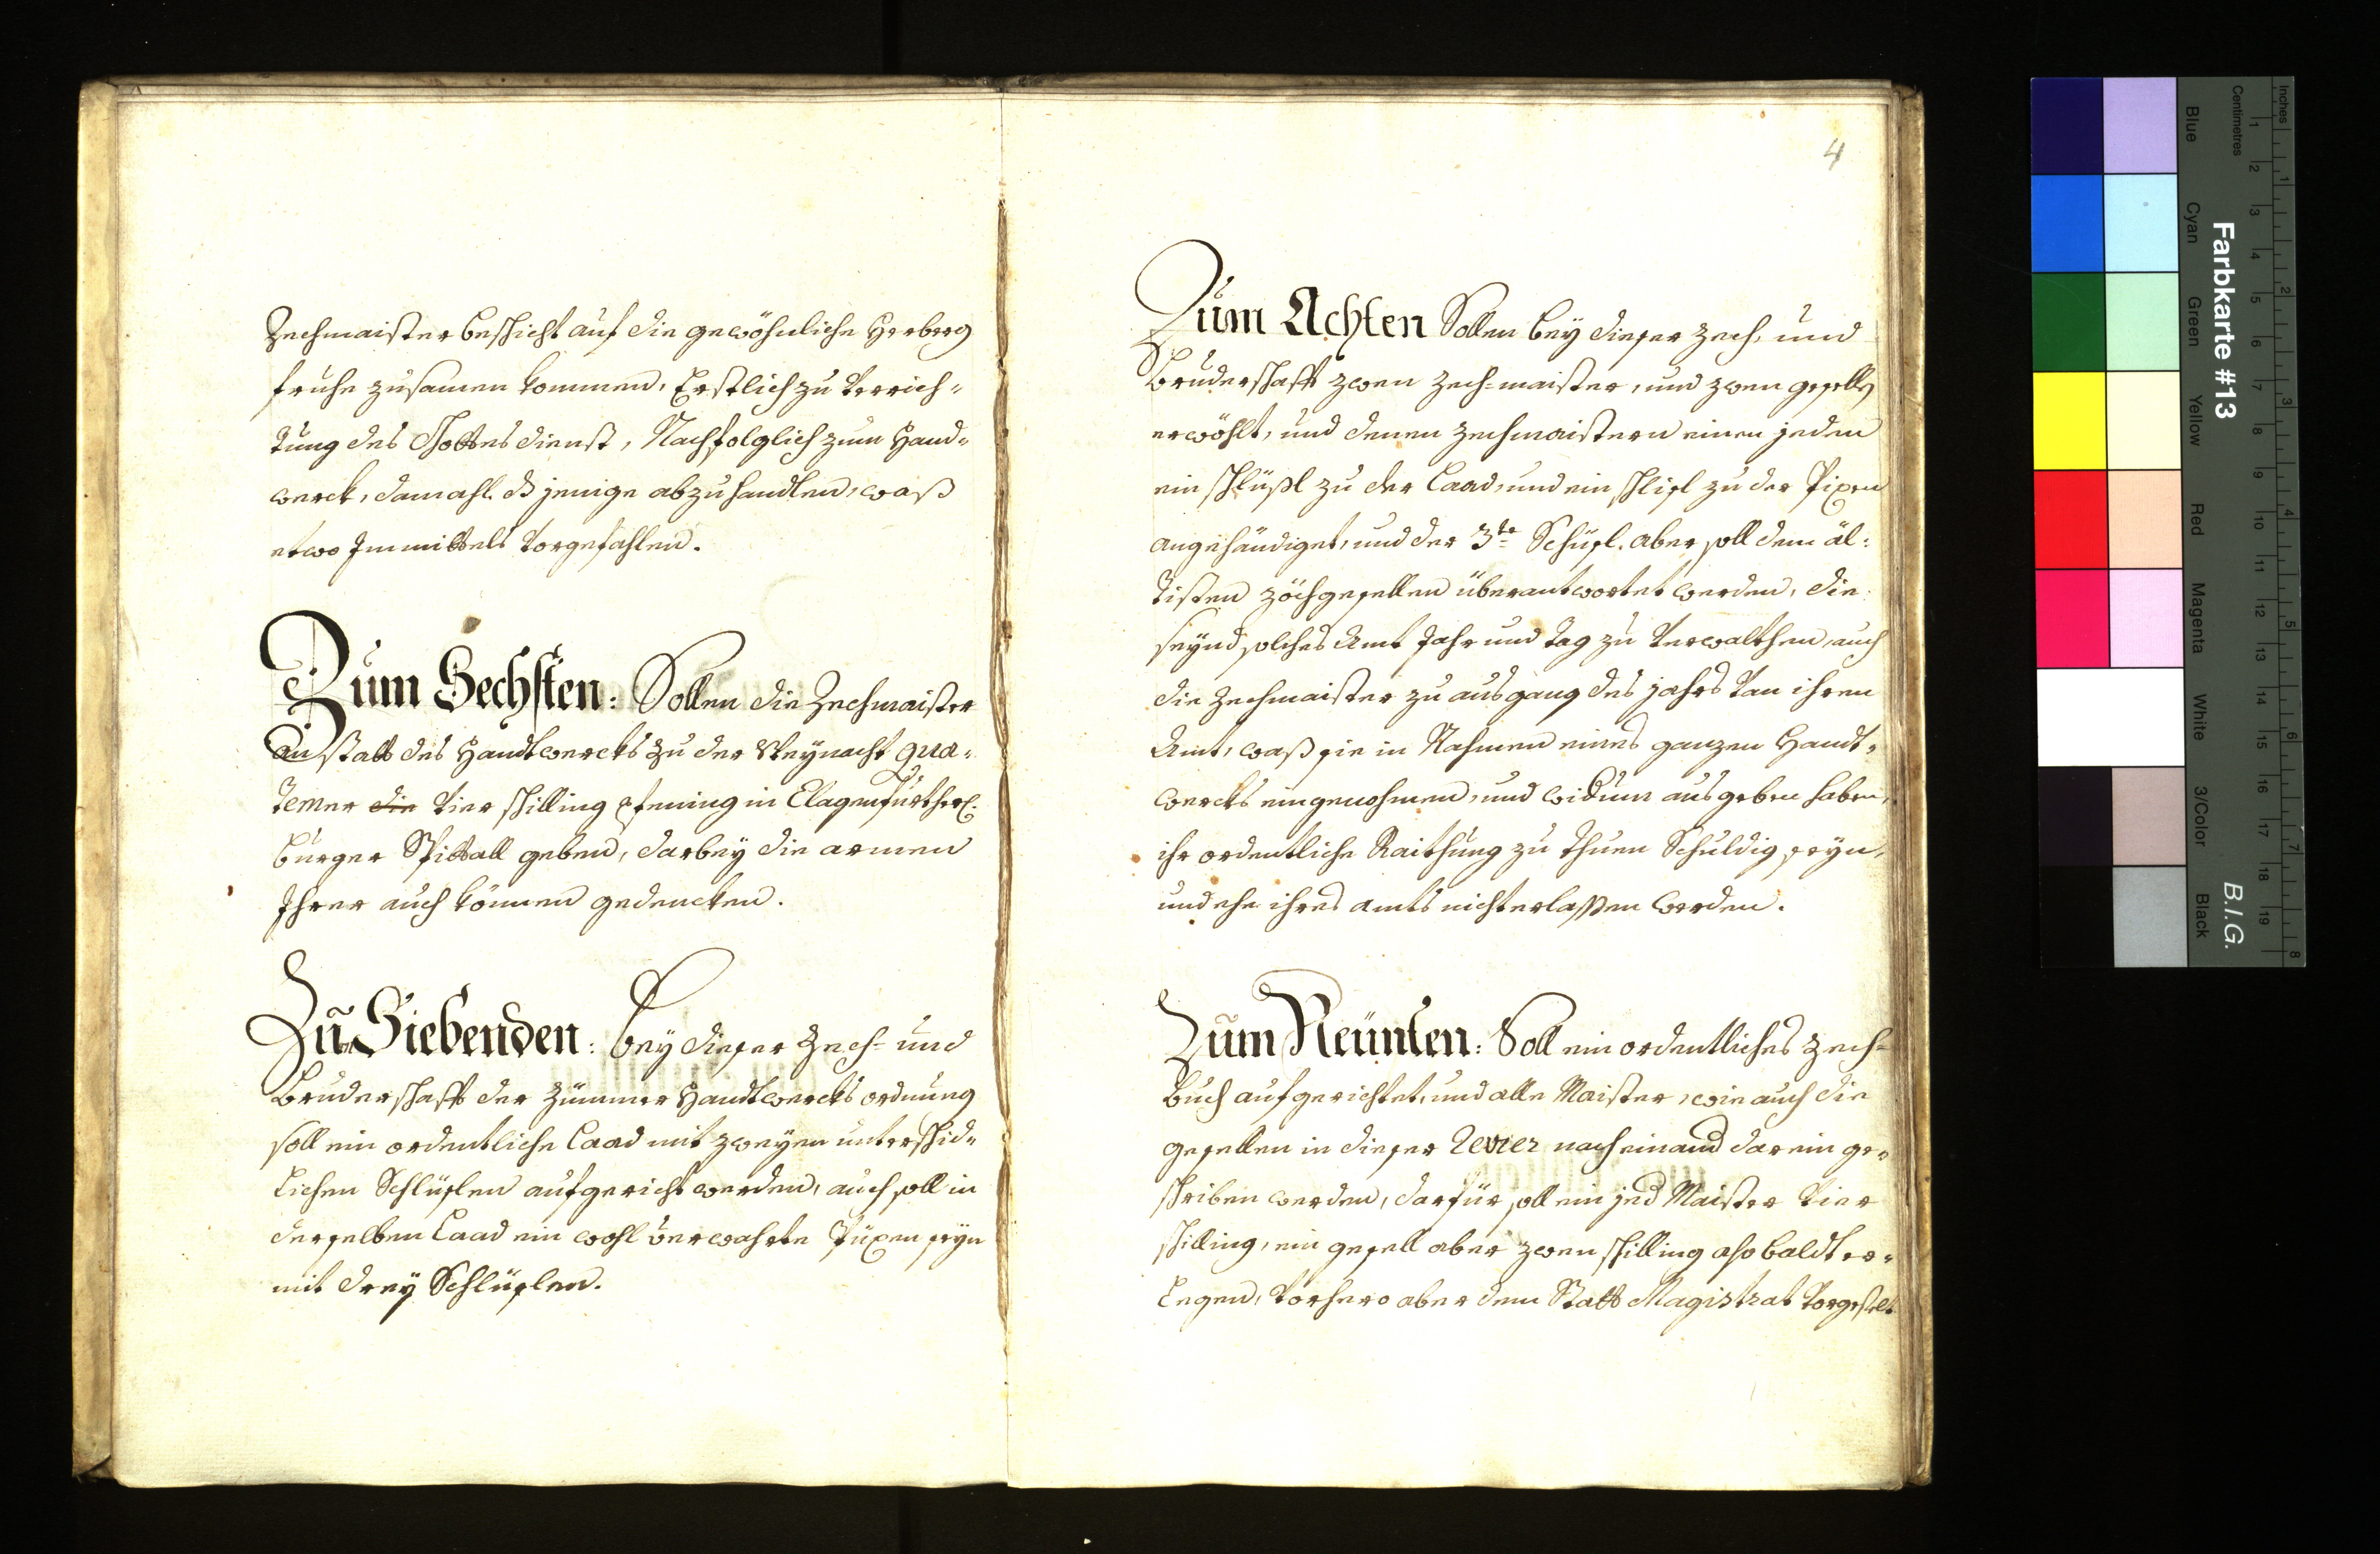 Zechmaister beschicht auf die gewöhnliche Herberg
fruhe zusamen kommen, Erstlich zu Verrich-
tung des Gottes dienst, Nachfolglich zum Hand-
werck, damahl ds jenige abzuhandlen, waß
etwo Immittels Vorgefahlen.
Zum Sechsten: Sollen die Zechmaister
an statt des Handtwercks zu der Weynacht qua-
temer die Vier schilling pfening in Clagenfurtherl:
burger Spittall geben, darbey die armen
Ihrer auch können gedencken.
Zum Siebenden: bey dieser Zech- und
Bruderschafft der Zümmer Handtwercks ordnung
soll ein ordentliche Laad mit zweyen unterschid-
lichen Schlüslen aufgericht werden, auch soll in
derselben Laad ein wohl verwahrte Püxen seyn
mit drey Schlüslen.
4
Zum Achten Sollen bey dieser Zech, und
Bruderschafft zwen Zech-maister, und zwen gesellen
erwöhlt, und denen Zechmaistern einen jeden
ein schlüßl zu der Laad, und ein schlisl zu der Pixen
angehändiget, und der 3te Schüsl. aber soll dem äl:
tisten zöchgesellen überantwortet werden, die
seynd solches Amt Jahr und Tag zu Verwalthen, auch
die Zechmaister zu ausgang des jahrs Von ihren
Amt, waß sie in Nahmen eines ganzen Handt-
wercks eingenohmen, und widum ausgeben haben,
ihr ordentliche Raithung zu thuen Schuldig seyn,
und ehe ihres amts nicht erlassen werden.
Zum Neünten: Soll ein ordentliches Zech-
buch aufgerichtet, und alle Maister, wie auch die
gesellen in dieser Revier nach einand darein ge-
schriben werden, darfür soll ein jed Maister Vier
schilling, ein gesell aber zwen schilling also baldt er-
legen, Vorhero aber dem Statt Magistrat Vorgestelt
Farbkarte #13
B.I.G.
Inches 1 2 3 4 5 6 7 8
Centimetres 1 2 3 4 5 6 7 8 9 10 11 12 13 14 15 16 17 18 19
Blue Cyan Green Yellow Red Magenta White 3/Color Black